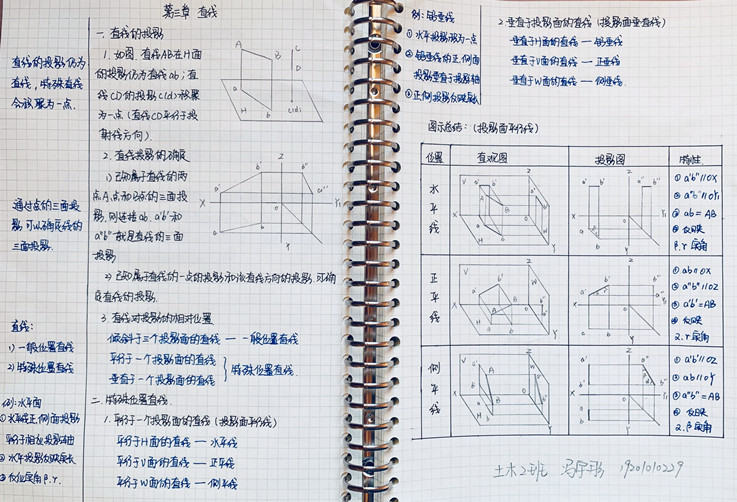 第三章 直线
一. 直线的投影
1. 如图. 直线AB在H面
的投影仍为直线ab; 直
线CD的投影c(d)积聚
为一点 (直线CD平行于投
射线方向).
2. 直线投影的确定
1) 已知属于直线的两
点A点和B点的三面投
影, 则连接ab. a'b'和
a"b"就是直线的三面
投影
2) 已知属于直线的一点的投影和该直线方向的投影, 可确
定直线的投影.
3. 直线对投影面的相对位置
倾斜于三个投影面的直线 — 一般位置直线
平行于一个投影面的直线
垂直于一个投影面的直线
特殊位置直线
二. 特殊位置直线.
1. 平行于一个投影面的直线 (投影面平行线)
平行于H面的直线 — 水平线
平行于V面的直线 — 正平线
平行于W面的直线 — 侧平线
直线的投影仍为
直线, 特殊直线
会积聚为一点.
通过点的三面投
影, 可以确定线的
三面投影.
直线:
1) 一般位置直线
2) 特殊位置直线
例: 水平面
① 水平线正. 侧面投影
平行于相应投影轴
② 水平投影反映实长
③ 反应实角 β. γ.
例: 铅垂线
① 水平投影积为一点
② 铅垂线的正. 侧面
投影垂直于投影轴
③ 正侧投影反映实长
2. 垂直于投影面的直线 (投影面垂直线)
垂直于H面的直线 — 铅垂线
垂直于V面的直线 — 正垂线
垂直于W面的直线 — 侧垂线
图示总结: (投影面平行线)
位置 直观图 投影图 特性
水平线
① a'b'//OX
② a"b"//OY₁
③ ab = AB
④ 反映
β. γ 实角
正平线
① ab//OX
② a"b"//OZ
③ a'b'=AB
④ 反映
α. γ 实角
侧平线
① a'b'//OZ
② ab//OY
③ a"b" = AB
④ 反映
α. β 实角
土木2班 冯宇彤 19201010229